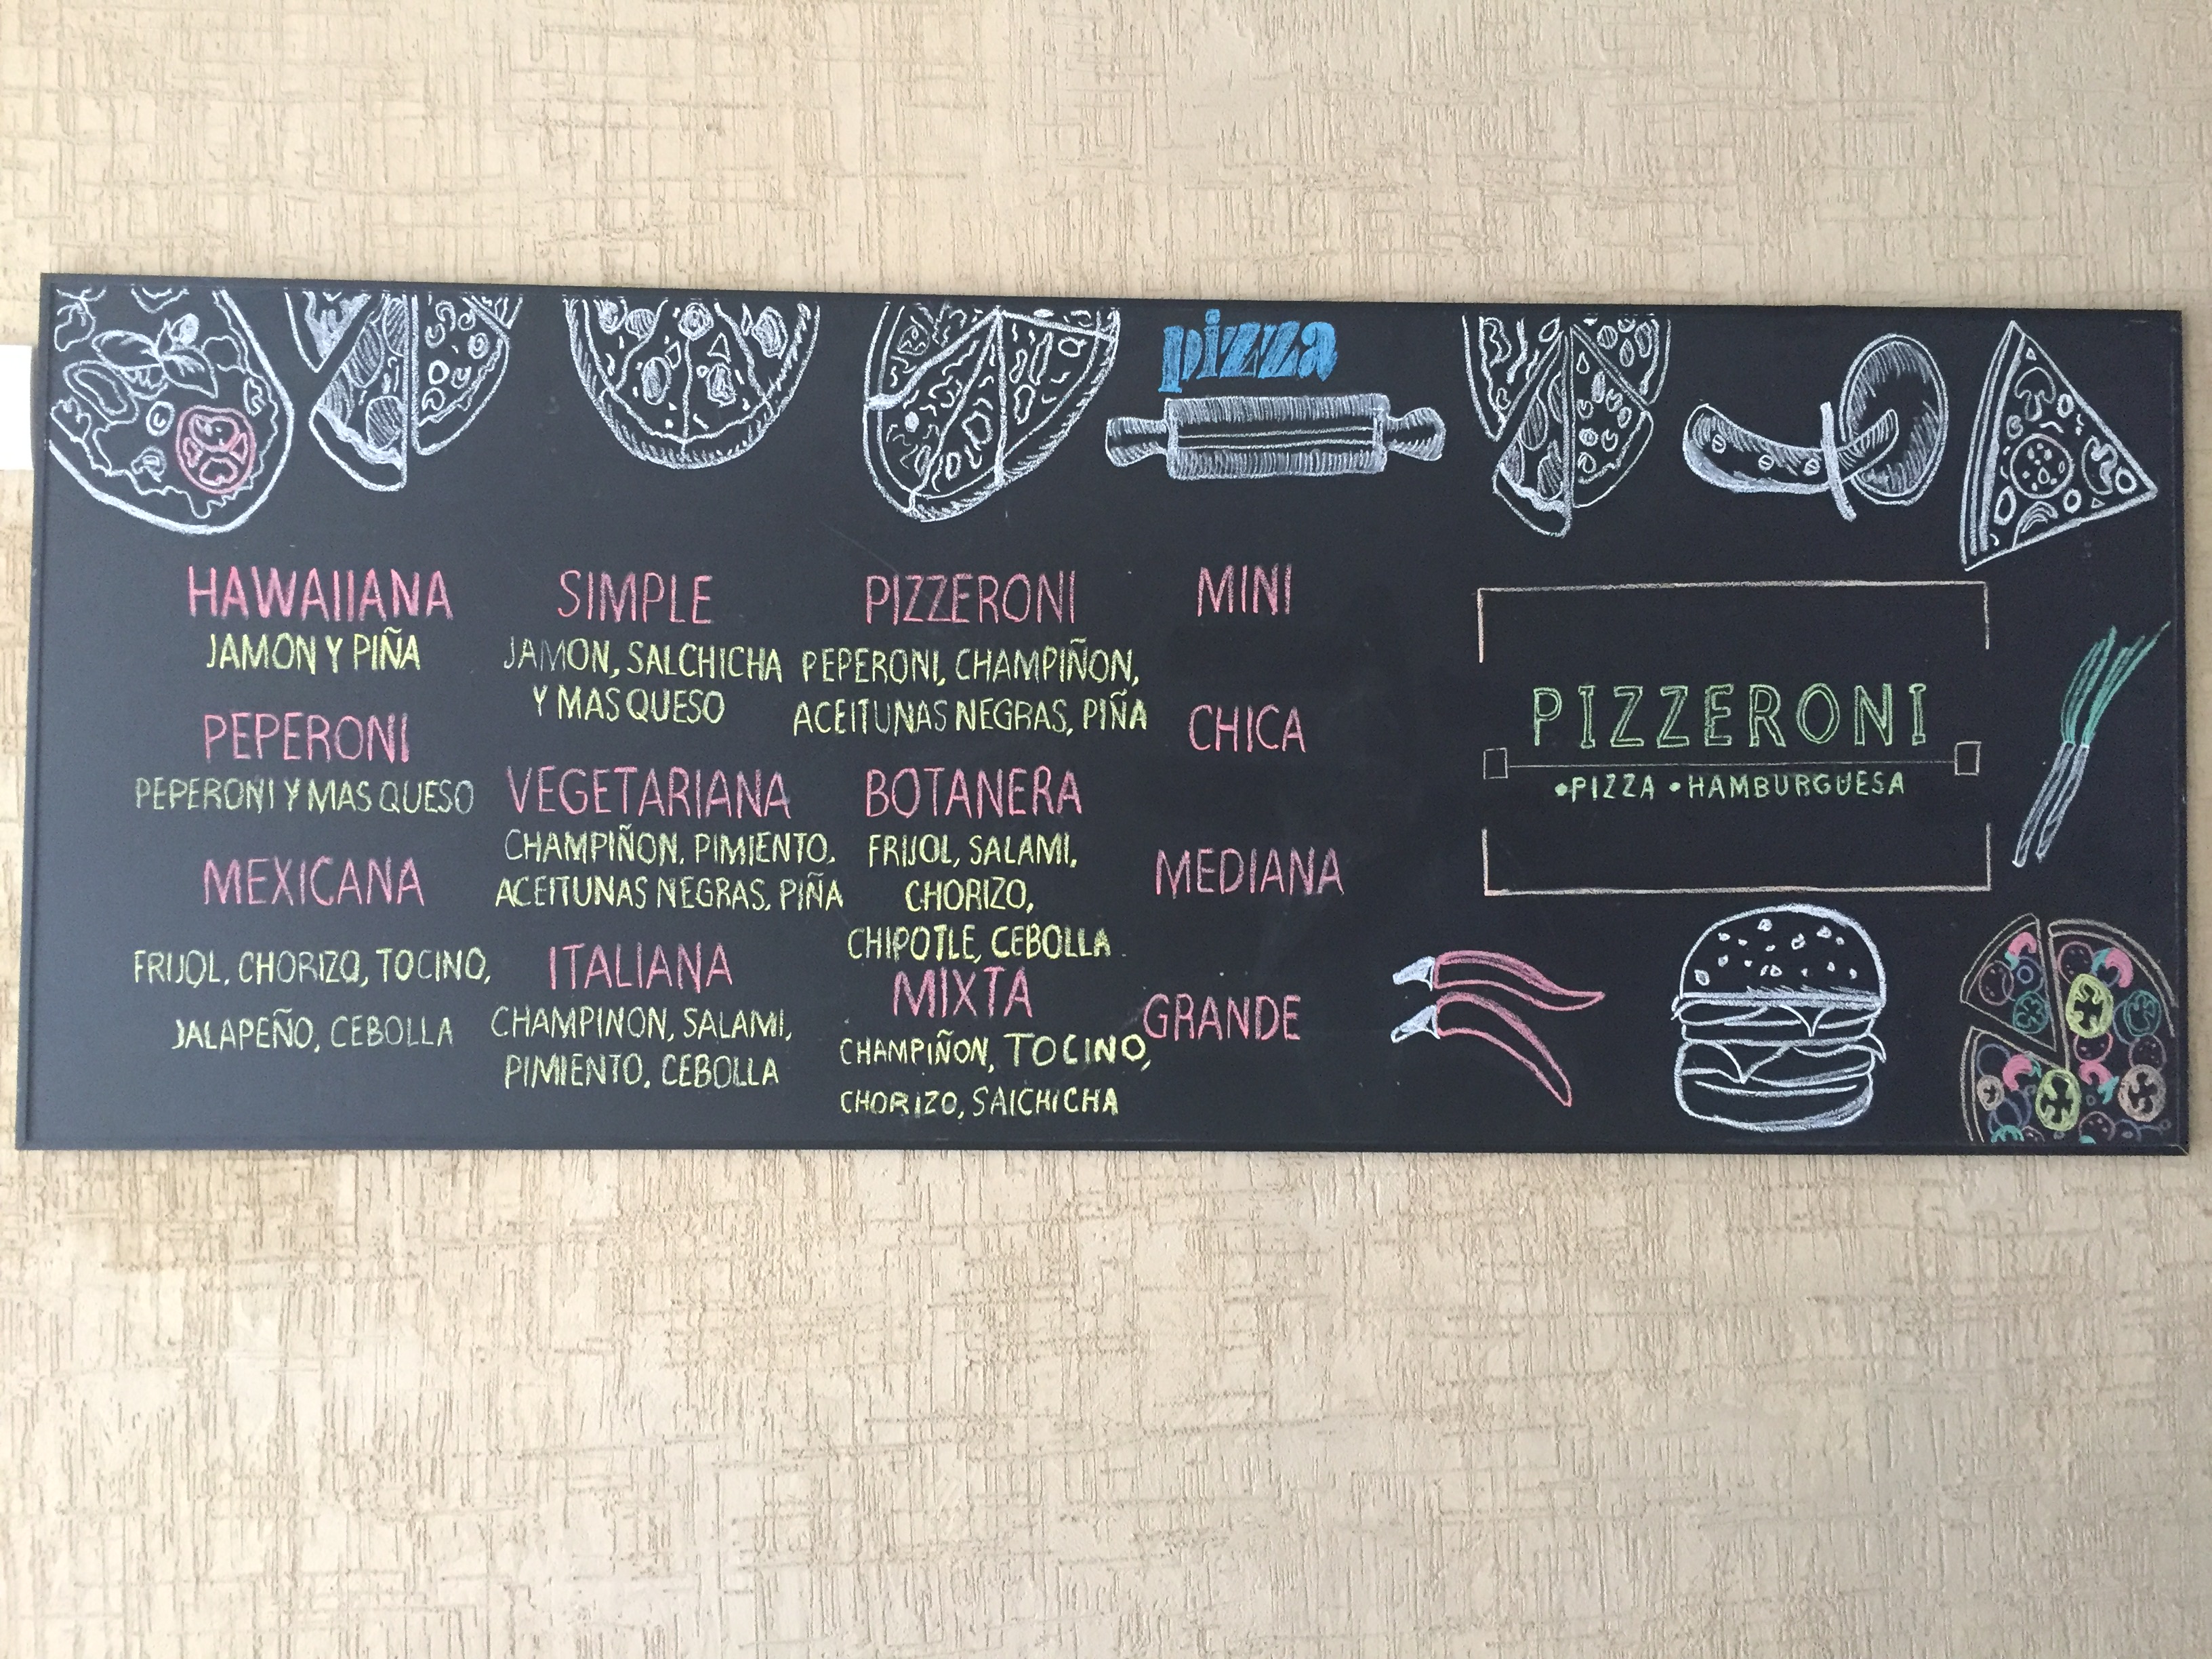 pizza
HAWAIIANA
JAMON Y PIÑA
PEPERONI
PEPERONI Y MAS QUESO
MEXICANA
FRIJOL, CHORIZO, TOCINO,
JALAPEÑO, CEBOLLA
SIMPLE
JAMON, SALCHICHA
Y MAS QUESO
VEGETARIANA
CHAMPIÑON, PIMIENTO,
ACEITUNAS NEGRAS, PIÑA
ITALIANA
CHAMPINON, SALAMI,
PIMIENTO, CEBOLLA
PIZZERONI
PEPERONI, CHAMPIÑON,
ACEITUNAS NEGRAS, PIÑA
BOTANERA
FRIJOL, SALAMI,
CHORIZO,
CHIPOTLE, CEBOLLA
MIXTA
CHAMPIÑON, TOCINO,
CHORIZO, SAICHICHA
MINI
CHICA
MEDIANA
GRANDE
PIZZERONI
•PIZZA •HAMBURGUESA